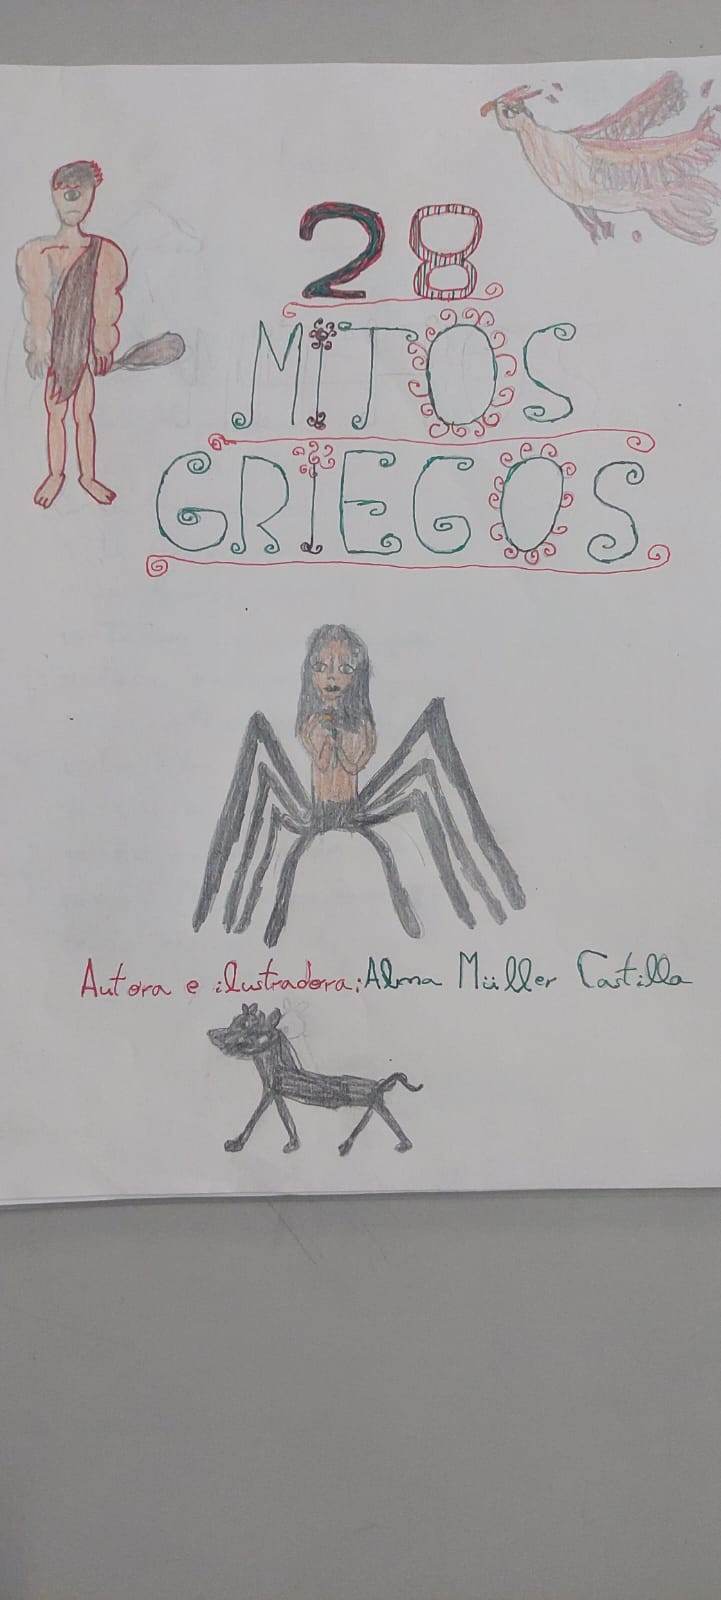 28
MITOS
GRIEGOS
Autora e ilustradora: Alma Müller Castilla